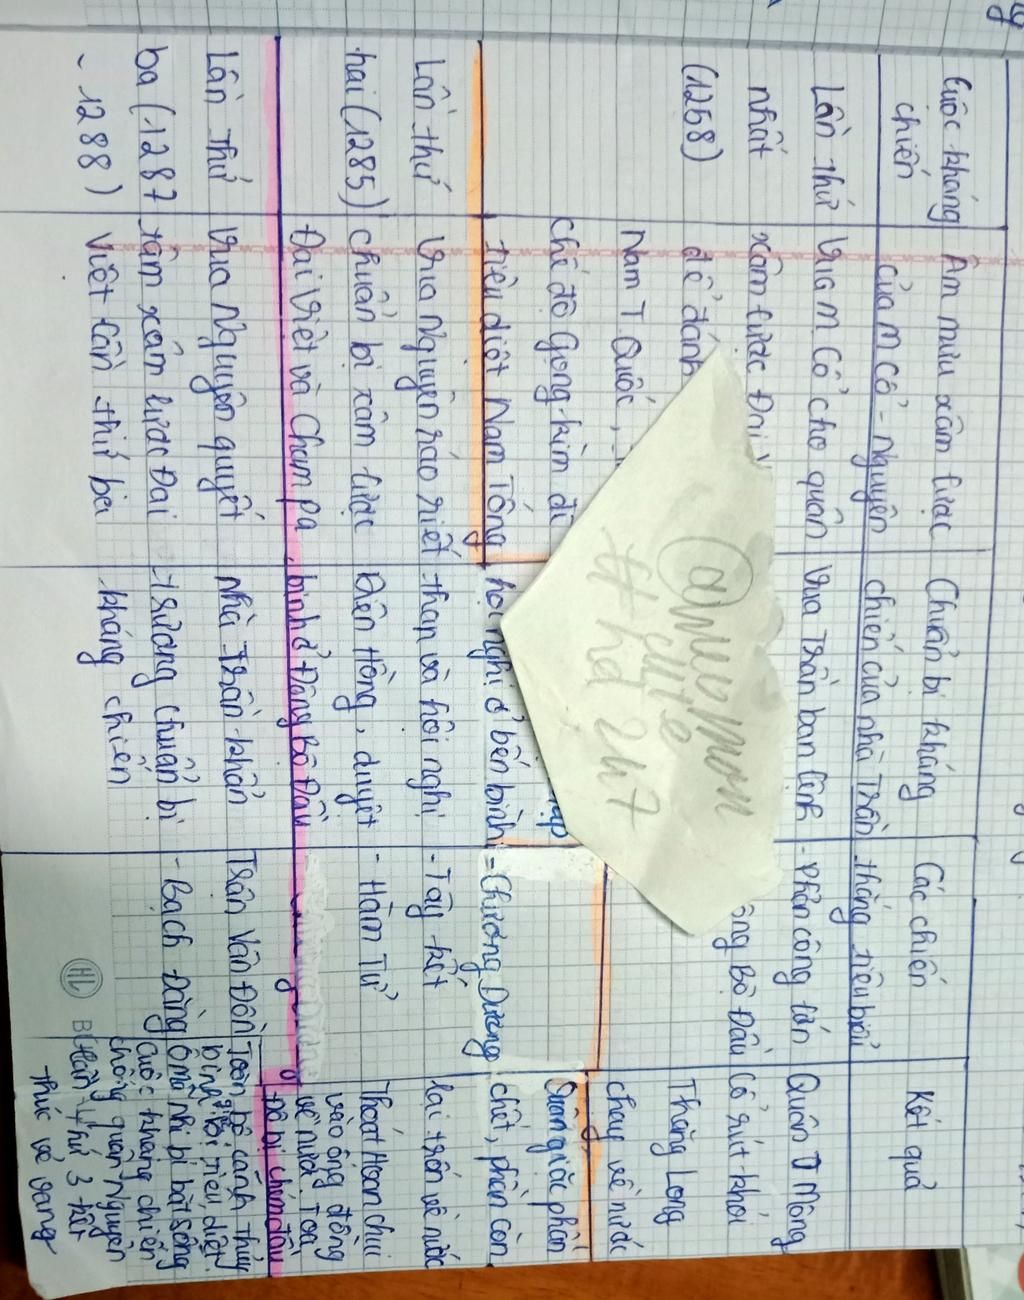 Cuộc kháng
chiến
Âm mưu xâm lược
của M Cổ - Nguyên
Chuẩn bị kháng
chiến của nhà Trần
Các chiến
thắng tiêu biểu
Kết quả
Lần thứ
nhất
(1258)
Vua M Cổ cho quân
xâm lược Đại
để đánh
Nam T. Quốc,
chế độ Gọng kìm để
tiêu diệt Nam Tống
Vua Trần ban lệnh
hội nghị ở bến bình
- Phản công lớn
ông Bộ Đầu
Quân Mông
Cổ rút khỏi
Thăng Long
chạy về nước
Lần thứ
hai (1285)
Vua Nguyên ráo riết
chuẩn bị xâm lược
Đại Việt và Cham pa
than và hội nghị
Diên Hồng, duyệt
binh ở Đông Bộ Đầu
- Chương Dương
- Tây kết
- Hàm Tử
Quân giặc phần
chết, phần còn
lại trốn về nước
Thoát Hoan chui
vào ống đồng
về nước. Toa
Đô bị chém đầu
Lần thứ
ba (1287
- 1288)
Vua Nguyên quyết
tâm xâm lược Đại
Việt lần thứ ba
Nhà Trần khẩn
trương chuẩn bị
kháng chiến
Trần Vân Đồn
- Bạch Đằng
Toàn bộ cánh thủy
binh giặc bị tiêu diệt
Ô mã nhi bị bắt sống
Cuộc kháng chiến
chống quân Nguyên
lần thứ 3 kết
thúc vẻ vang
HL
# hd 247